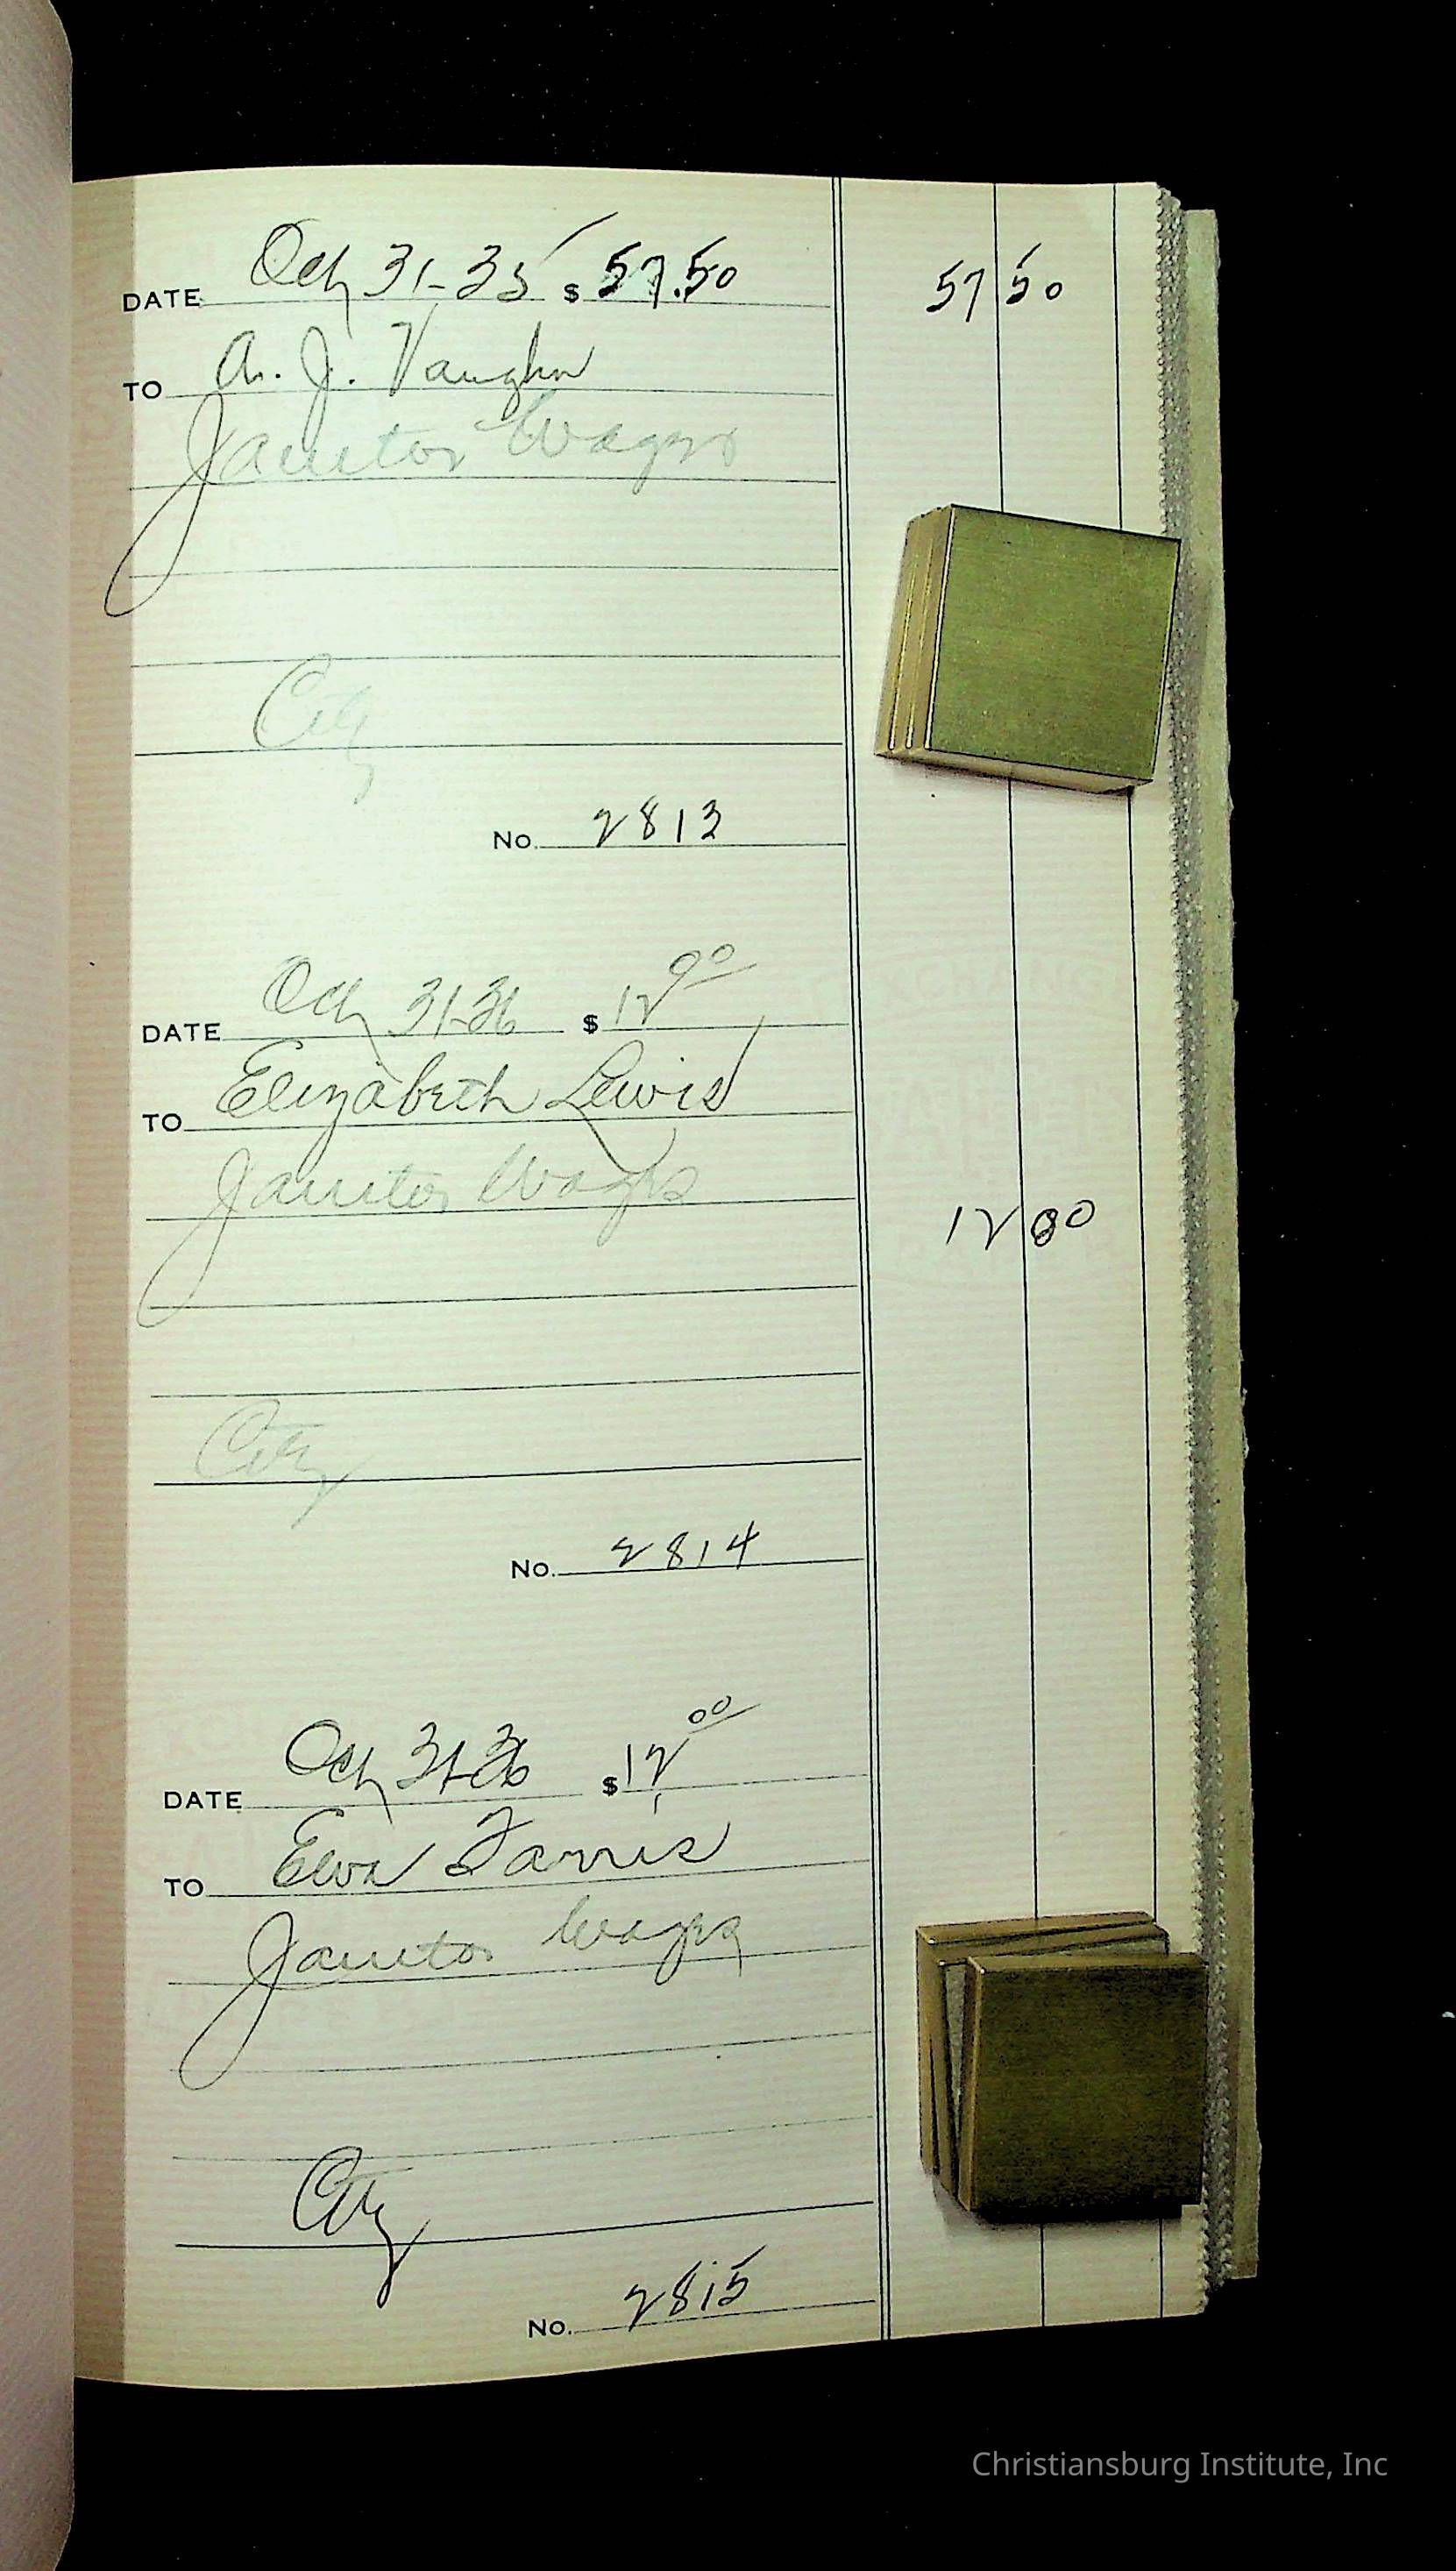 DATE Oct 31-35 $ 57.50 57 50
TO A. J. Vaughn
Janitor Wages
City
No. 2813
DATE Oct 31-36 $ 12 00
TO Elizabeth Lewis
Janitor Wages
12 00
City
No. 2814
DATE Oct 31-36 $ 12 00
TO Farris
Janitor Wages
City
No. 2815
Christiansburg Institute, Inc